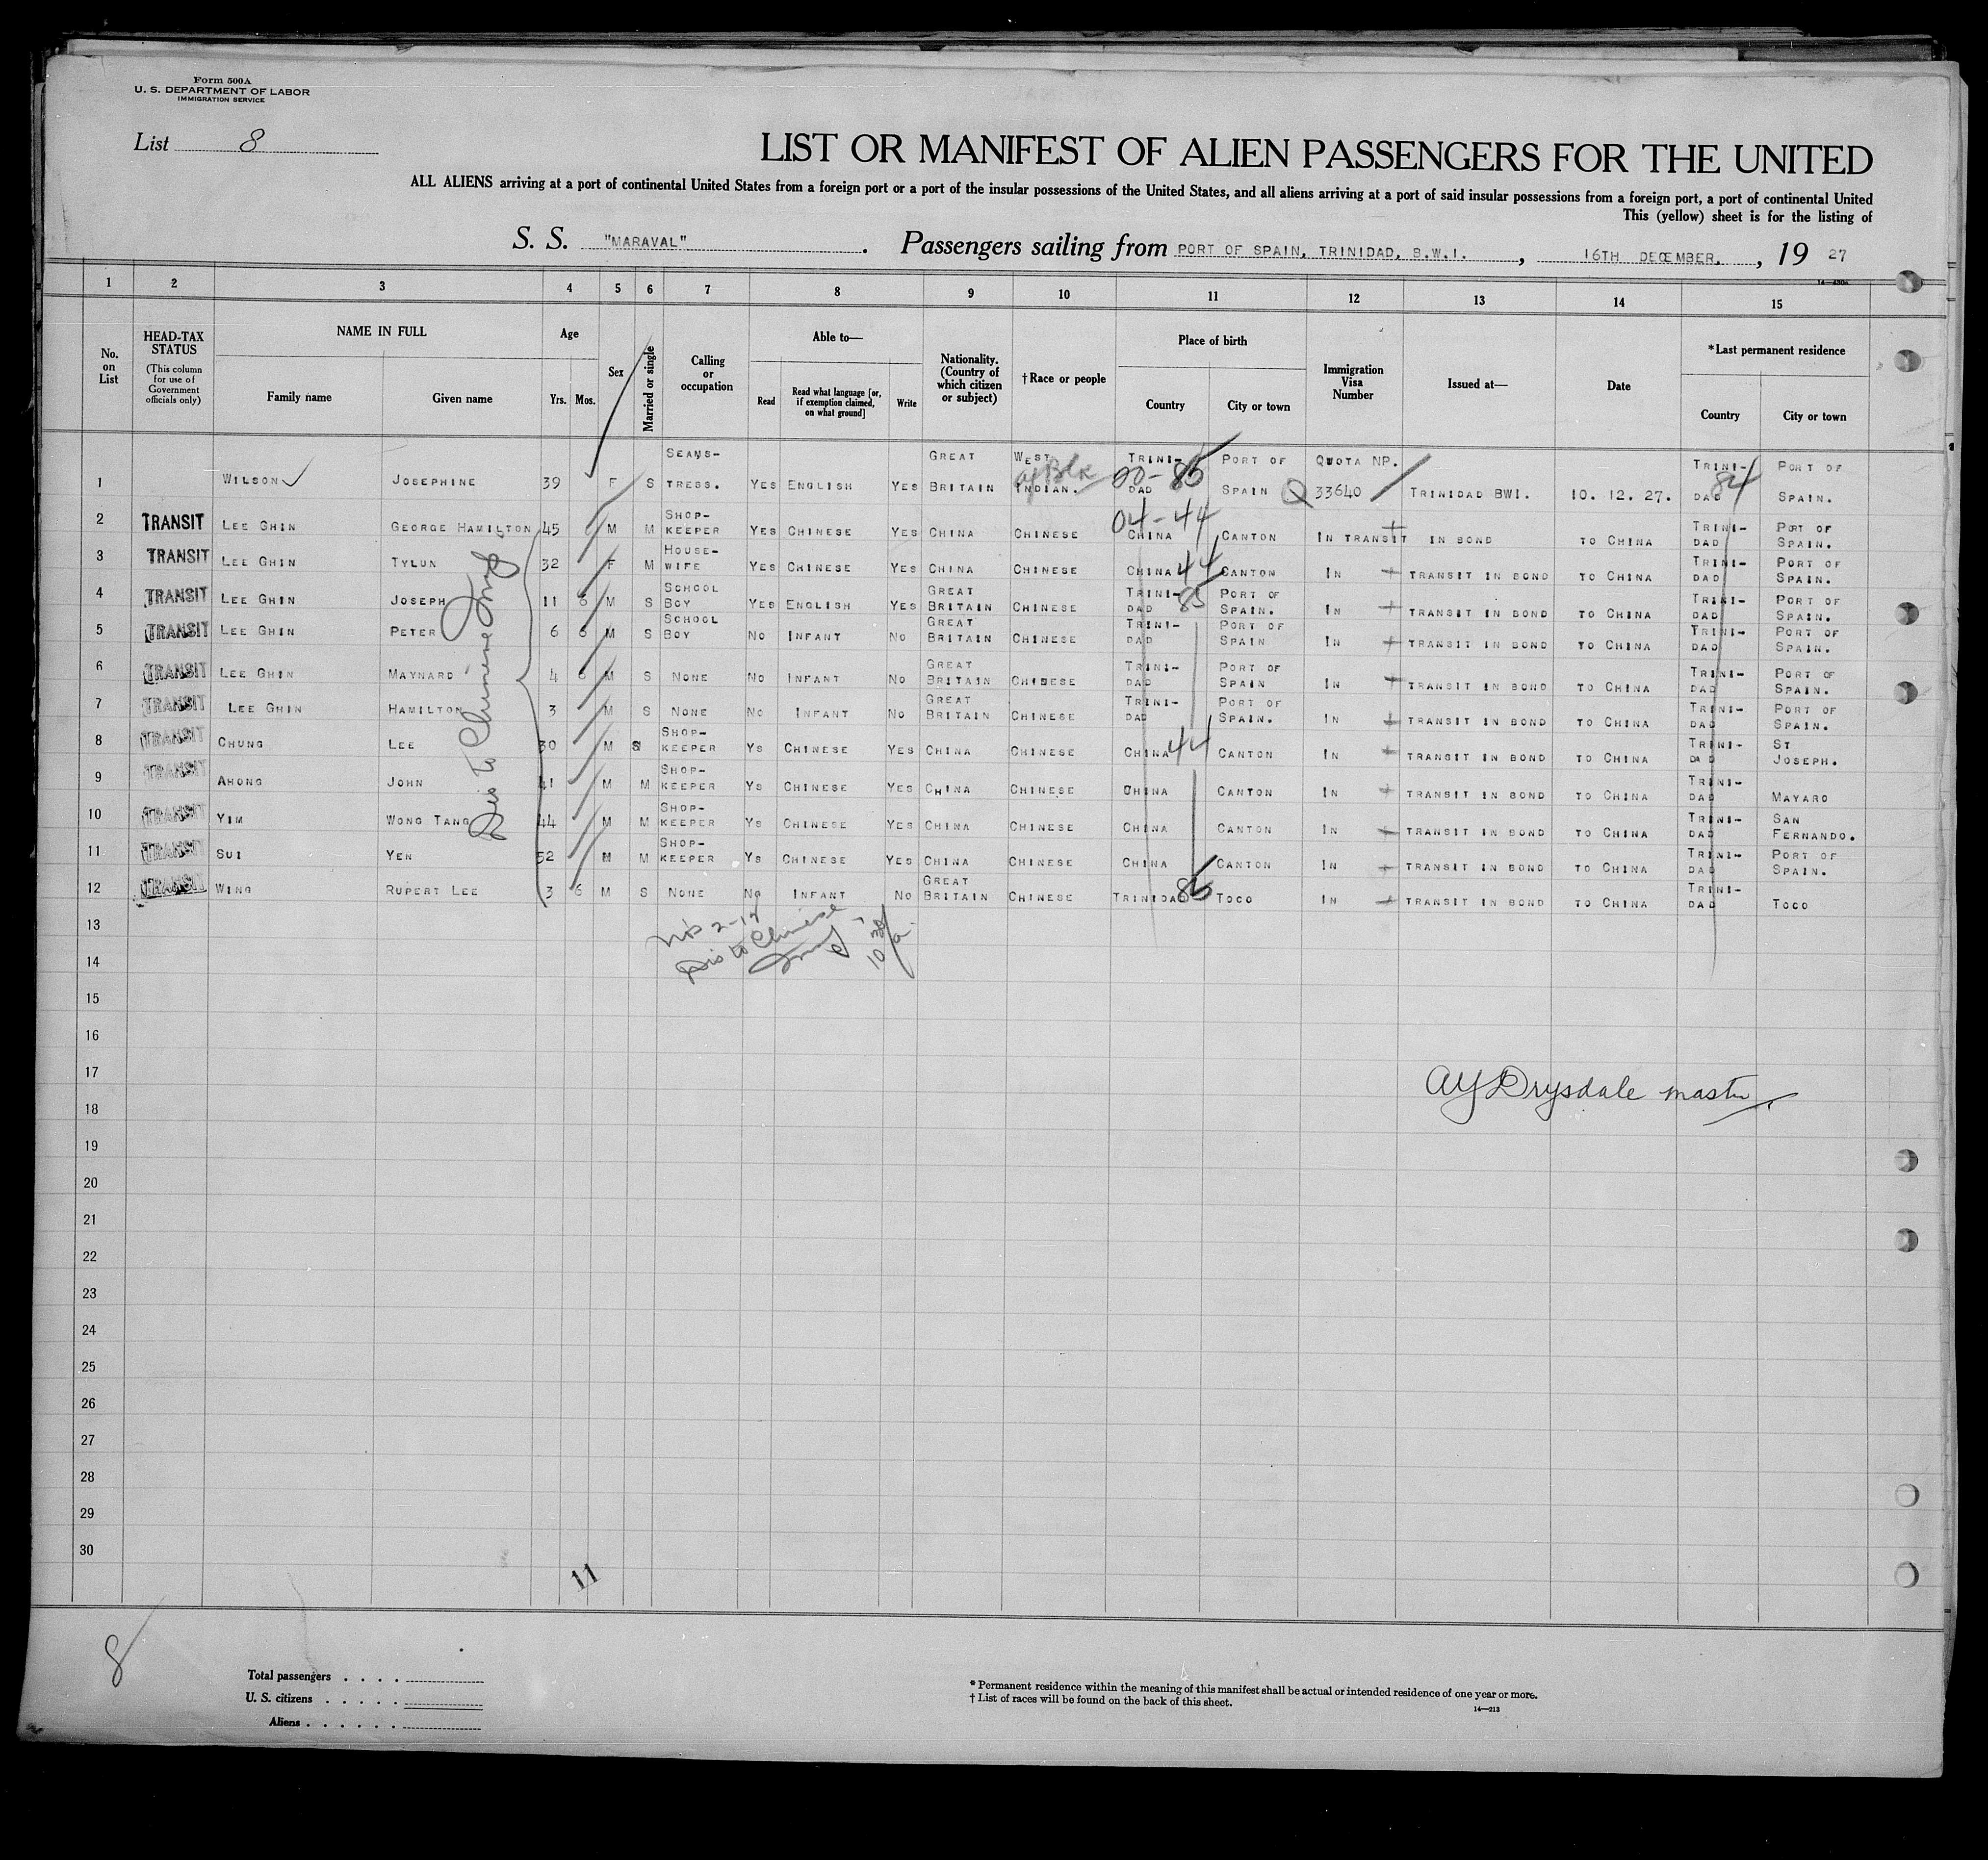 Form 500A
U. S. DEPARTMENT OF LABOR
IMMIGRATION SERVICE
List 8
LIST OR MANIFEST OF ALIEN PASSENGERS FOR THE UNITED
ALL ALIENS arriving at a port of continental United States from a foreign port or a port of the insular possessions of the United States, and all aliens arriving at a port of said insular possessions from a foreign port, a port of continental United
This (yellow) sheet is for the listing of
S. S. "MARAVAL". Passengers sailing from PORT OF SPAIN, TRINIDAD, B.W.I., 16TH DECEMBER, 19 27
1 2 3 4 5 6 7 8 9 10 11 12 13 14 15
No. on List
HEAD-TAX STATUS
(This column for use of Government officials only)
NAME IN FULL
Family name Given name
Age
Yrs. Mos.
Sex
Married or single
Calling or occupation
Able to—
Read Read what language [or, if exemption claimed, on what ground] Write
Nationality. (Country of which citizen or subject)
†Race or people
Place of birth
Country City or town
Immigration Visa Number
Issued at—
Date
*Last permanent residence
Country City or town
1 WILSON JOSEPHINE 39 F S SEAMS-TRESS. YES ENGLISH YES GREAT BRITAIN WEST INDIAN. TRINI-DAD PORT OF SPAIN QUOTA NP. 33640 TRINIDAD BWI. 10. 12. 27. TRINI-DAD PORT OF SPAIN.
20-85 Q 84
2 TRANSIT LEE GHIN GEORGE HAMILTON 45 M M SHOP-KEEPER YES CHINESE YES CHINA CHINESE CHINA CANTON IN TRANSIT IN BOND TO CHINA TRINI-DAD PORT OF SPAIN.
04-44
3 TRANSIT LEE GHIN TYLUN 32 F M HOUSE-WIFE YES CHINESE YES CHINA CHINESE CHINA 44 CANTON IN TRANSIT IN BOND TO CHINA TRINI-DAD PORT OF SPAIN.
4 TRANSIT LEE GHIN JOSEPH 11 6 M S SCHOOL BOY YES ENGLISH YES GREAT BRITAIN CHINESE TRINI-DAD 85 PORT OF SPAIN. IN TRANSIT IN BOND TO CHINA TRINI-DAD PORT OF SPAIN.
5 TRANSIT LEE GHIN PETER 6 6 M S SCHOOL BOY NO INFANT NO GREAT BRITAIN CHINESE TRINI-DAD PORT OF SPAIN IN TRANSIT IN BOND TO CHINA TRINI-DAD PORT OF SPAIN.
6 TRANSIT LEE GHIN MAYNARD 4 6 M S NONE NO INFANT NO GREAT BRITAIN CHINESE TRINI-DAD PORT OF SPAIN IN TRANSIT IN BOND TO CHINA TRINI-DAD PORT OF SPAIN.
7 TRANSIT LEE GHIN HAMILTON 3 M S NONE NO INFANT NO GREAT BRITAIN CHINESE TRINI-DAD PORT OF SPAIN. IN TRANSIT IN BOND TO CHINA TRINI-DAD PORT OF SPAIN.
8 TRANSIT CHUNG LEE 30 M S SHOP-KEEPER YS CHINESE YES CHINA CHINESE CHINA 44 CANTON IN TRANSIT IN BOND TO CHINA TRINI-DAD ST JOSEPH.
9 TRANSIT AHONG JOHN 41 M M SHOP-KEEPER YS CHINESE YES CHINA CHINESE CHINA CANTON IN TRANSIT IN BOND TO CHINA TRINI-DAD MAYARO
10 TRANSIT YIM WONG TANG 44 M M SHOP-KEEPER YS CHINESE YES CHINA CHINESE CHINA CANTON IN TRANSIT IN BOND TO CHINA TRINI-DAD SAN FERNANDO.
11 TRANSIT SUI YEN 52 M M SHOP-KEEPER YS CHINESE YES CHINA CHINESE CHINA CANTON IN TRANSIT IN BOND TO CHINA TRINI-DAD PORT OF SPAIN.
12 TRANSIT WING RUPERT LEE 3 6 M S NONE NO INFANT NO GREAT BRITAIN CHINESE TRINIDAD 85 TOCO IN TRANSIT IN BOND TO CHINA TRINI-DAD TOCO
Dis to Chinese
2-12
Dis to Chinese
13
14
15
16
17
AY Drysdale master.
18
19
20
21
22
23
24
25
26
27
28
29
30
11
8
Total passengers
U. S. citizens
Aliens
* Permanent residence within the meaning of this manifest shall be actual or intended residence of one year or more.
† List of races will be found on the back of this sheet.
14—213